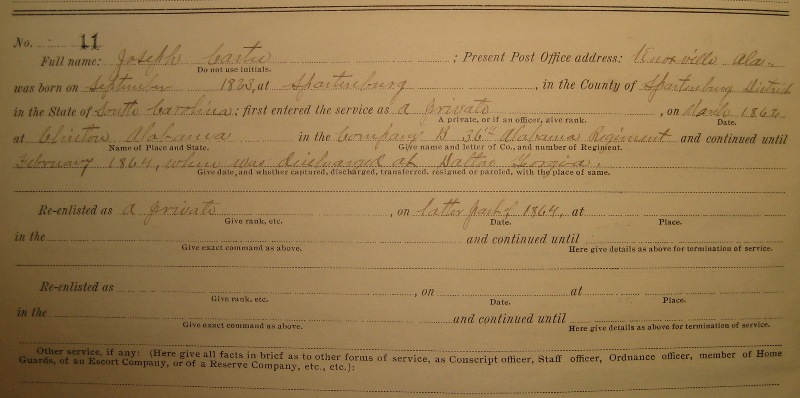 No. 11
Full name: Joseph Carter ; Present Post Office address: Knoxville Ala.
Do not use initials.
was born on September 1823, at Spartenburg , in the County of Spartenburg District
in the State of South Carolina; first entered the service as a private , on March 1862
A private, or if an officer, give rank. Date.
at Clinton Alabama in the Company D 36th Alabama Regiment and continued until
Name of Place and State. Give name and letter of Co., and number of Regiment.
February 1864, when was discharged at Dalton Gorgia.
Give date, and whether captured, discharged, transferred, resigned or paroled, with the place of same.
Re-enlisted as a private , on latter part of 1864, at
Give rank, etc. Date. Place.
in the and continued until
Give exact command as above. Here give details as above for termination of service.
Re-enlisted as , on at
Give rank, etc. Date. Place.
in the and continued until
Give exact command as above. Here give details as above for termination of service.
Other service, if any: (Here give all facts in brief as to other forms of service, as Conscript officer, Staff officer, Ordnance officer, member of Home
Guards, of an Escort Company, or of a Reserve Company, etc., etc.):